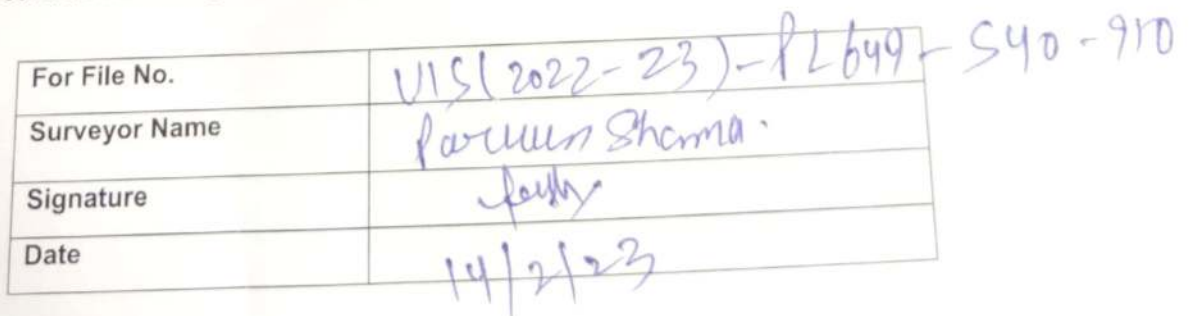 For File No. VIS(2022-23)-PL649-540-910
Surveyor Name Parveen Sharma.
Signature
Date 14/2/23